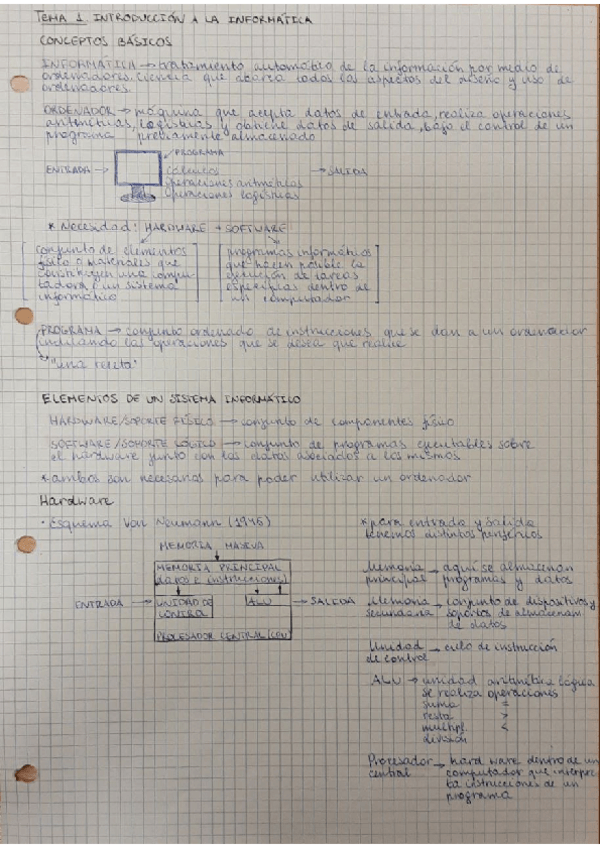 TEMA 1. INTRODUCCIÓN A LA INFORMÁTICA
CONCEPTOS BÁSICOS
INFORMÁTICA → tratamiento automático de la información por medio de
ordenadores. Ciencia que abarca todos los aspectos del diseño y uso de
ordenadores.
ORDENADOR → máquina que acepta datos de entrada, realiza operaciones
aritméticas, logísticas y obtiene datos de salida, bajo el control de un
programa previamente almacenado
PROGRAMA
ENTRADA →
cálculos
→ SALIDA
operaciones aritméticas
operaciones logísticas
* Necesidad: HARDWARE + SOFTWARE
conjunto de elementos
físico o materiales que
constituyen una compu-
tadora / un sistema
informático
programas informáticos
que hacen posible la
ejecución de tareas
específicas dentro de
un computador
PROGRAMA → conjunto ordenado de instrucciones que se dan a un ordenador
indicando las operaciones que se desea que realice
"una receta"
ELEMENTOS DE UN SISTEMA INFORMÁTICO
HARDWARE/SOPORTE FÍSICO → conjunto de componentes físico
SOFTWARE/SOPORTE LÓGICO → conjunto de programas ejecutables sobre
el hardware junto con los datos asociados a los mismos
* ambos son necesarios para poder utilizar un ordenador
Hardware
· Esquema Von Neumann (1946)
MEMORIA MASIVA
MEMORIA PRINCIPAL
datos e instrucciones
ENTRADA →
UNIDAD DE
CONTROL
ALU
→ SALIDA
PROCESADOR CENTRAL (CPU)
* para entrada y salida
tenemos distintos periféricos
Memoria → aquí se almacenan
principal programas y datos
Memoria → conjunto de dispositivos y
secundaria soportes de almacenam.
de datos
Unidad → ciclo de instrucción
de control
ALU → unidad aritmética lógica
se realiza operaciones
suma =
resta >
multipl. <
división
Procesador → hard ware dentro de un
central computador que interpre-
ta instrucciones de un
programa